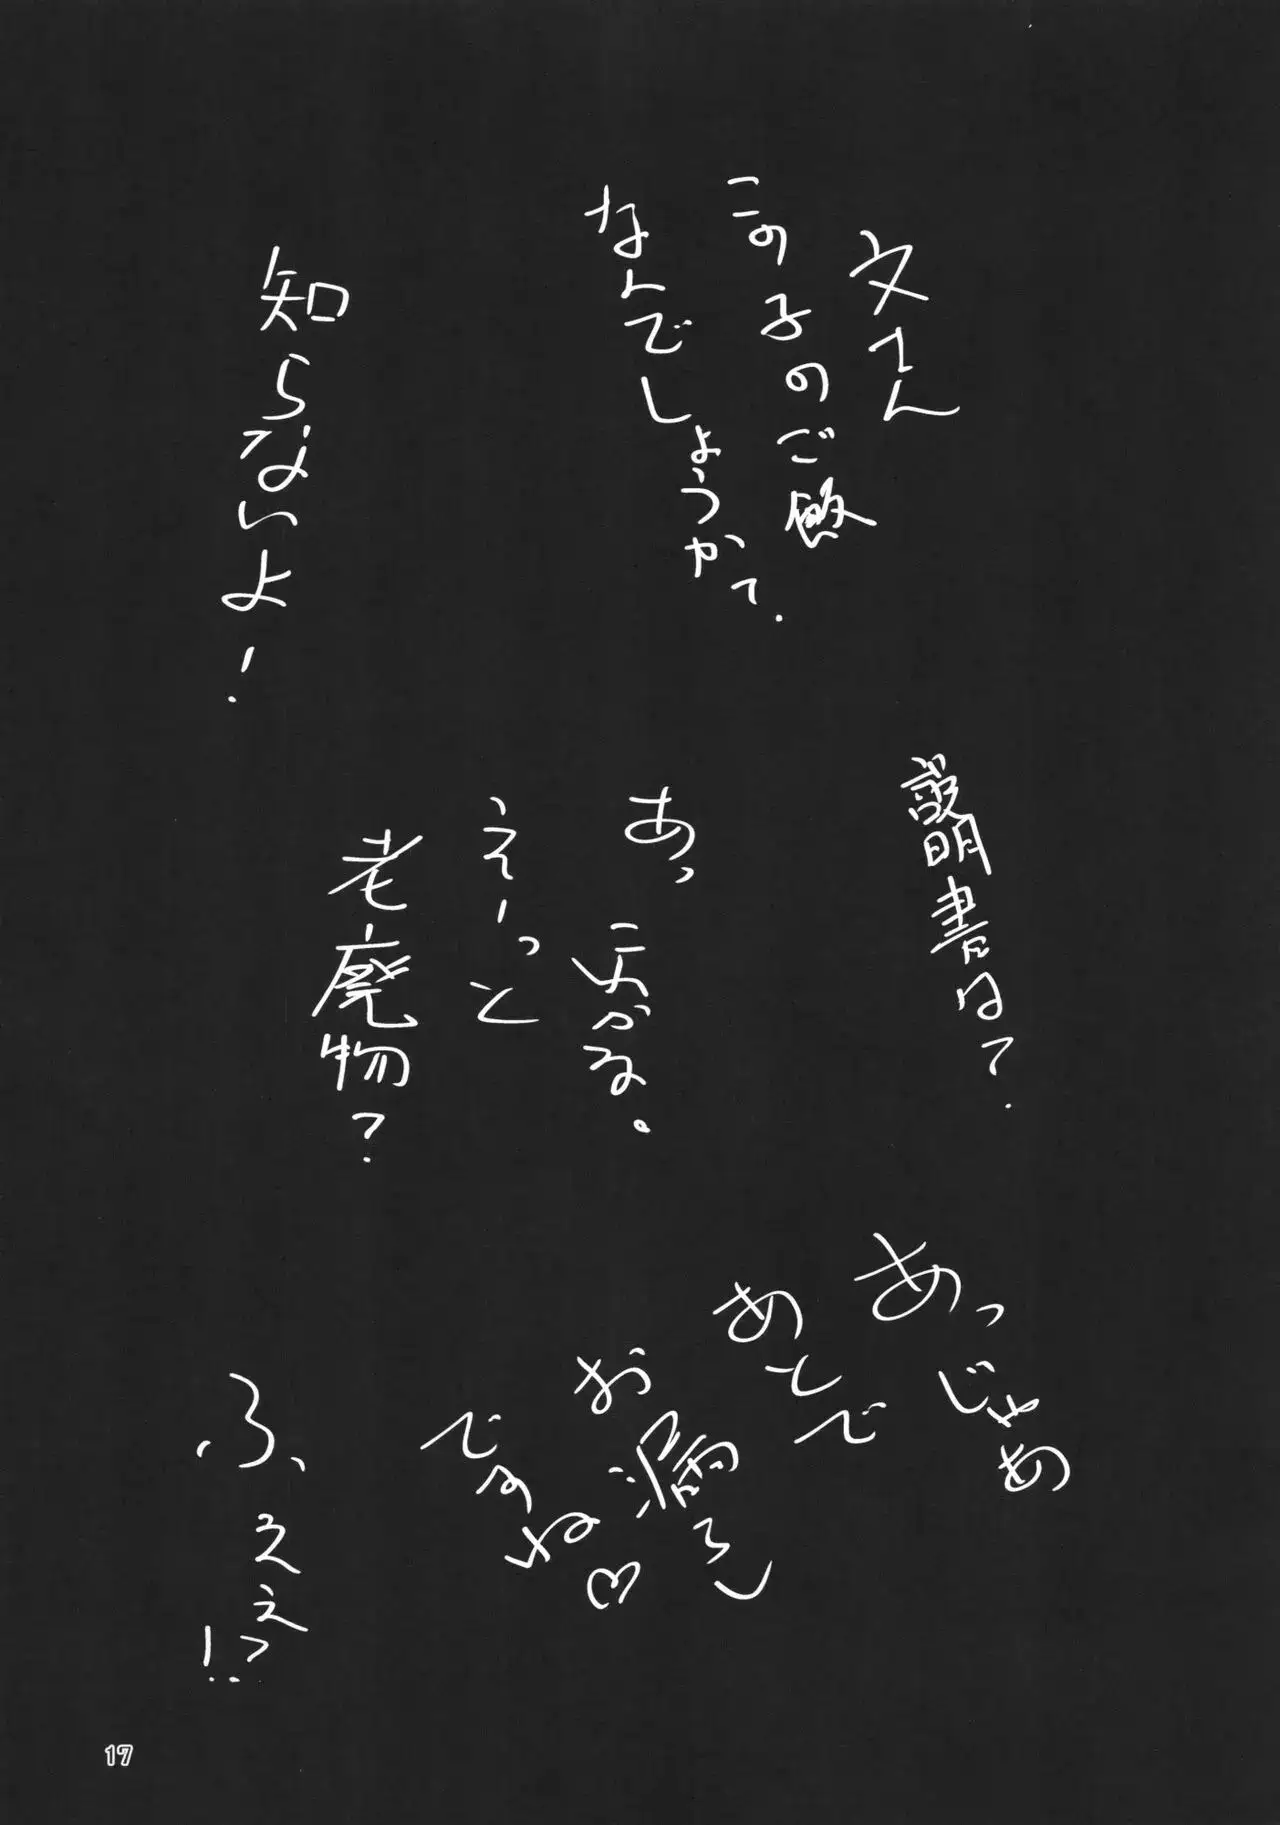 文さん
この子のご飯
なんでしょうかて?
知らないよ!
説明書は?
あっ
えーっと
老廃物?
あっじゃあ
あとで
お漏らし
ですね♡
ふ、
ええ
!?
17